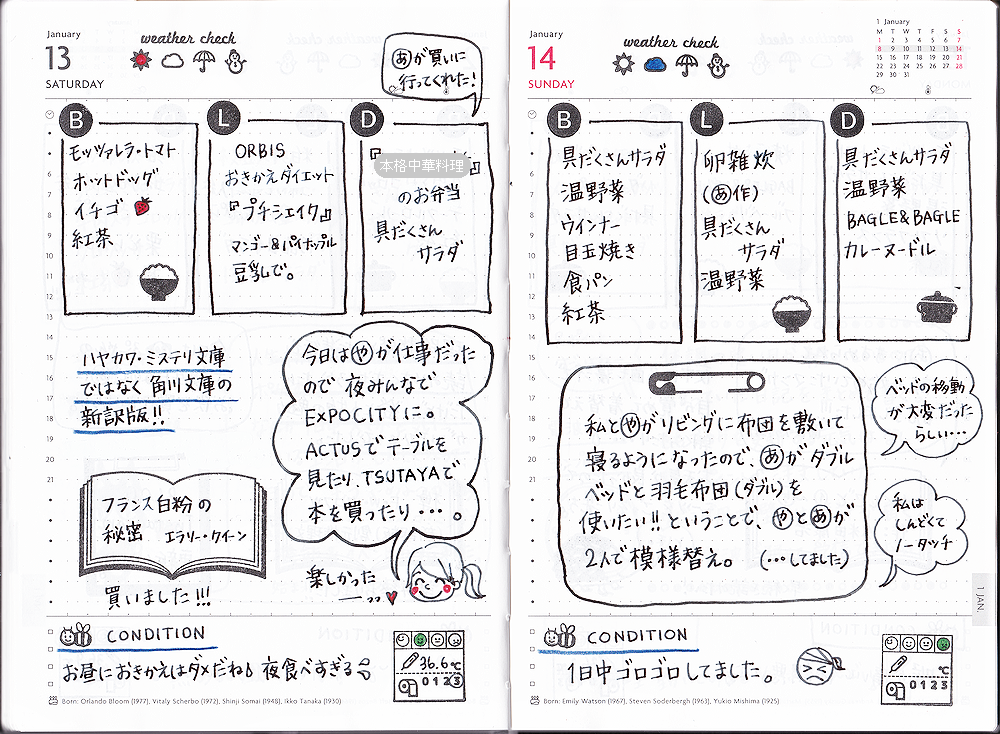 January
13
SATURDAY
weather check
あが買いに
行ってくれた!
B
モッツァレラ・トマト
ホットドッグ
イチゴ
紅茶
L
ORBIS
おきかえダイエット
『プチシェイク』
マンゴー&パイナップル
豆乳で。
D
『本格中華料理』
のお弁当
具だくさん
サラダ
6
7
8
9
10
11
12
13
14
15
16
17
18
19
20
21
ハヤカワ・ミステリ文庫
ではなく角川文庫の
新訳版!!
フランス白粉の
秘密 エラリー・クイーン
買いました!!!
今日はやが仕事だった
ので夜みんなで
EXPOCITYに。
ACTUSでテーブルを
見たり、TSUTAYAで
本を買ったり・・・。
楽しかった
CONDITION
お昼におきかえはダメだね♪ 夜食べすぎる
36.6℃
0 1 2 3
Born: Orlando Bloom (1977), Vitaly Scherbo (1972), Shinji Somai (1948), Ikko Tanaka (1930)
January
14
SUNDAY
weather check
1 January
M T W T F S S
1 2 3 4 5 6 7
8 9 10 11 12 13 14
15 16 17 18 19 20 21
22 23 24 25 26 27 28
29 30 31
B
具だくさんサラダ
温野菜
ウインナー
目玉焼き
食パン
紅茶
L
卵雑炊
(あ作)
具だくさん
サラダ
温野菜
D
具だくさんサラダ
温野菜
BAGLE&BAGLE
カレーヌードル
6
7
8
9
10
11
12
13
14
15
16
17
18
19
20
21
私とやがリビングに布団を敷いて
寝るようになったので、あがダブル
ベッドと羽毛布団(ダブル)を
使いたい!!ということで、やとあが
2人で模様替え。 (・・・してました)
ベッドの移動
が大変だった
らしい・・・
私は
しんどくて
ノータッチ
1 JAN.
CONDITION
1日中ゴロゴロしてました。
℃
0 1 2 3
Born: Emily Watson (1967), Steven Soderbergh (1963), Yukio Mishima (1925)